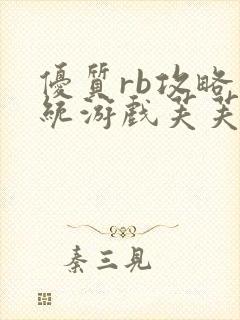 優質rb攻略
統游戲芙芙
秦三見